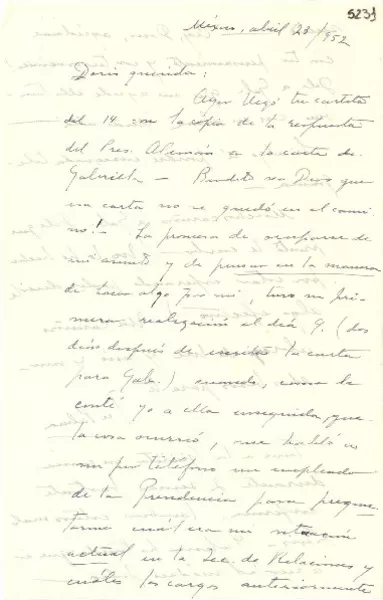 5231
México, abril 23/952
Doris querida:
Ayer llegó tu cartita
del 14 con la copia de la respuesta
del Pres. Alemán a la carta de
Gabriella — Bendito sea Dios que
una carta no se quedó en el cami-
no! — La promesa de ocuparse de
mi asunto y de pensar en la manera
de hacer algo por mí, tuvo su pri-
mera realización el día 9. (dos
días después de escrita la carta
para Gab.) cuando, como le
conté yo a ella enseguida, que
la cosa ocurrió, me habló a
mí por teléfono un empleado
de la Presidencia para pregun-
tarme cuál era mi situación
actual en la Sec. de Relaciones y
cuáles los cargos anteriormente